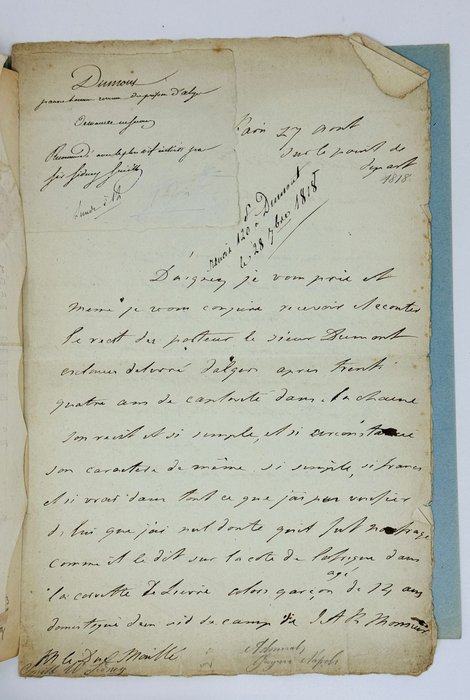 Dumont
pauvre homme revenu du prison d'alger
Recommandé avec le plus vif intérêt par
Sir Sidney Smith
Paris 27 Aout
sur le point de
depart
1818
remis 120 à Dumont
le 28 7bre 1818
Daignez je vous prie et
même je vous conjure recevoir et ecouter
le recit du porteur le sieur Dumont
esclave delivré d'alger apres trente
quatre ans de captivité dans la chaine
son recit et si simple, et si circonstancié
son caractere de même, si simple, si franc
et si vrai dans tout ce que j'ai pu verifier
de lui que j'ai nul doute qu'il fut naufragé
comme il le dit sur la cote de l'afrique dans
la corvette Le Lievre alors garçon agé de 14 ans
domestique d'un aid de camp de S A R Monsieur
M. le Duc Maillé
Smith W Sidney
Admiral